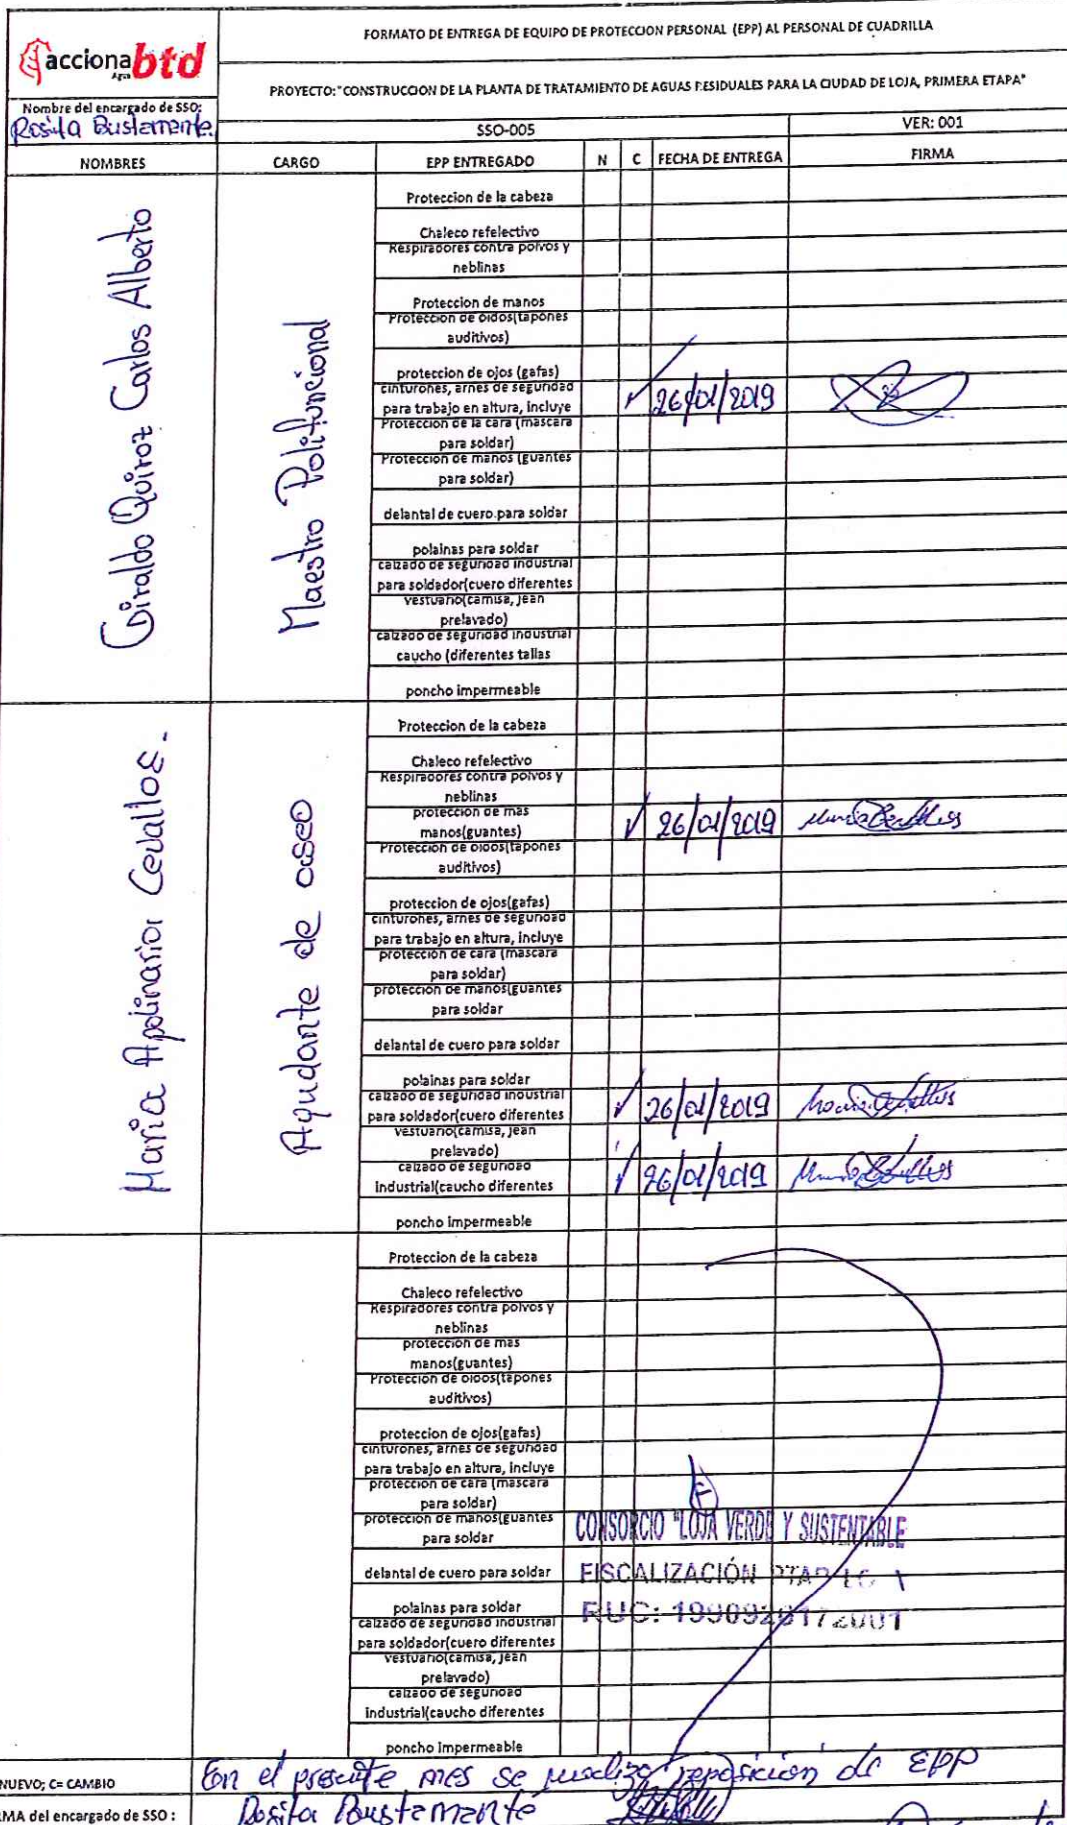 acciona btd
Agua
FORMATO DE ENTREGA DE EQUIPO DE PROTECCION PERSONAL (EPP) AL PERSONAL DE CUADRILLA
PROYECTO:"CONSTRUCCION DE LA PLANTA DE TRATAMIENTO DE AGUAS RESIDUALES PARA LA CIUDAD DE LOJA, PRIMERA ETAPA"
Nombre del encargado de SSO:
Rosita Bustamante
SSO-005 VER: 001
NOMBRES CARGO EPP ENTREGADO N C FECHA DE ENTREGA FIRMA
Giraldo Quiroz Carlos Alberto
Maestro Polifuncional
Proteccion de la cabeza
Chaleco refelectivo
Respiradores contra polvos y
neblinas
Proteccion de manos
Proteccion de oidos(tapones
auditivos)
proteccion de ojos (gafas)
cinturones, arnes de seguridad
para trabajo en altura, incluye ✓ 26/01/2019
Protección de la cara (mascara
para soldar)
Proteccion de manos (guantes
para soldar)
delantal de cuero para soldar
polainas para soldar
calzado de seguridad industrial
para soldador(cuero diferentes
vestuario(camisa, jean
prelavado)
calzado de seguridad industrial
caucho (diferentes tallas
poncho impermeable
Maria Apolinaria Cevallos.
Aqudante de aseo
Proteccion de la cabeza
Chaleco refelectivo
Respiradores contra polvos y
neblinas
protección de mas
manos(guantes) ✓ 26/01/2019
Protección de oidos(tapones
auditivos)
proteccion de ojos(gafas)
cinturones, arnes de seguridad
para trabajo en altura, incluye
protección de cara (mascara
para soldar)
protección de manos(guantes
para soldar
delantal de cuero para soldar
polainas para soldar
calzado de seguridad industrial
para soldador(cuero diferentes ✓ 26/01/2019
vestuario(camisa, jean
prelavado)
calzado de seguridad
industrial(caucho diferentes ✓ 26/01/2019
poncho impermeable
Proteccion de la cabeza
Chaleco refelectivo
Respiradores contra polvos y
neblinas
protección de mas
manos(guantes)
Protección de oidos(tapones
auditivos)
proteccion de ojos(gafas)
cinturones, arnes de seguridad
para trabajo en altura, incluye
protección de cara (mascara
para soldar)
protección de manos(guantes
para soldar
delantal de cuero para soldar
polainas para soldar
calzado de seguridad industrial
para soldador(cuero diferentes
vestuario(camisa, jean
prelavado)
calzado de seguridad
industrial(caucho diferentes
poncho impermeable
CONSORCIO "LOJA VERDE Y SUSTENTABLE
FISCALIZACIÓN PTAR
RUC:
NUEVO; C= CAMBIO En el presente mes se realizo reposición de EPP
MA del encargado de SSO : Rosita Bustamante